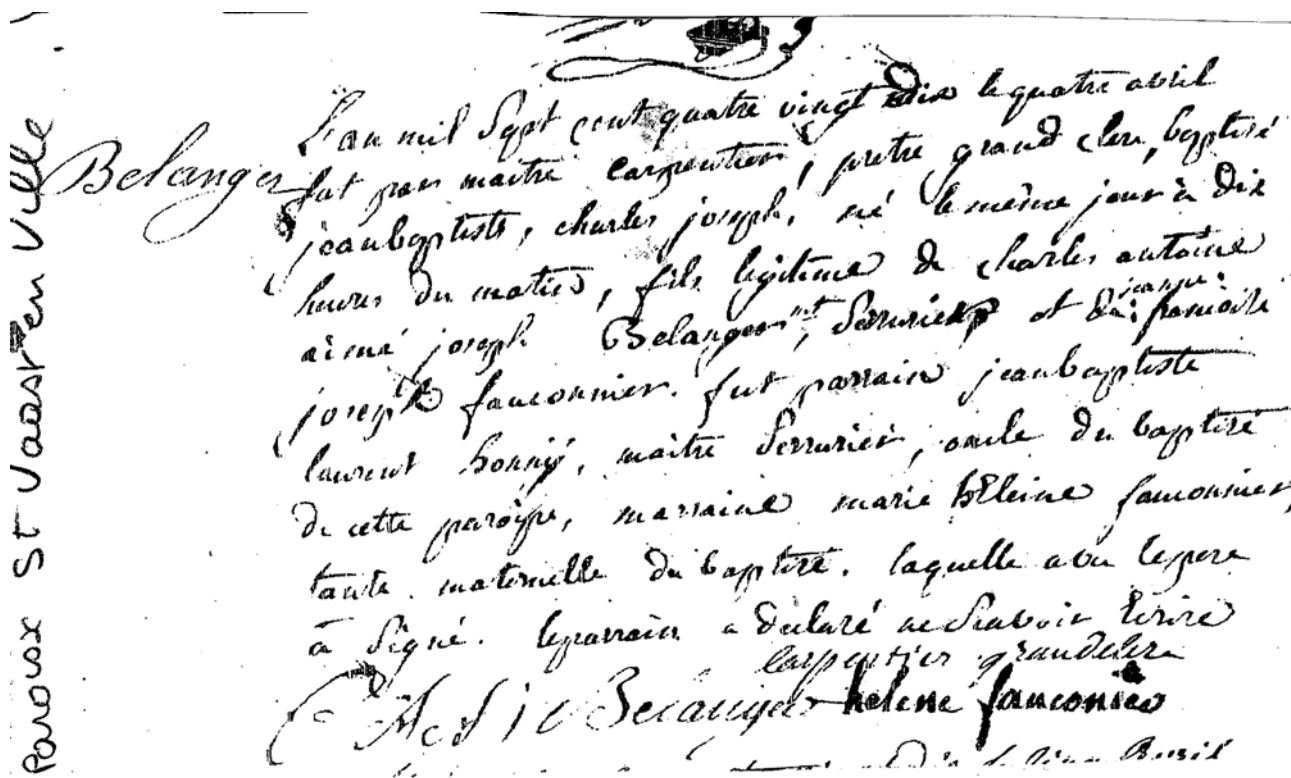 Paroisse St Vaast en Ville
Belanger
L'an mil Sept cent quatre vingt dix le quatre avril
fut par maitre carpentier, pretre grand clerc, baptisé
jean baptiste, charles joseph, né le même jour à dix
heures du matin, fils légitime de charles antoine
aimé joseph Belanger, Serrurier et de jeanne françoise
joseph fauconnier. fut parrain jean baptiste
laurent, maitre Serrurier, oncle du baptisé
de cette paroisse, marraine marie héleine fauconnier,
tante maternelle du baptisé. laquelle avec le pere
a Signé. le parrain a déclaré ne Scavoir Ecrire
Carpentier grand clerc
Belanger helene fauconier